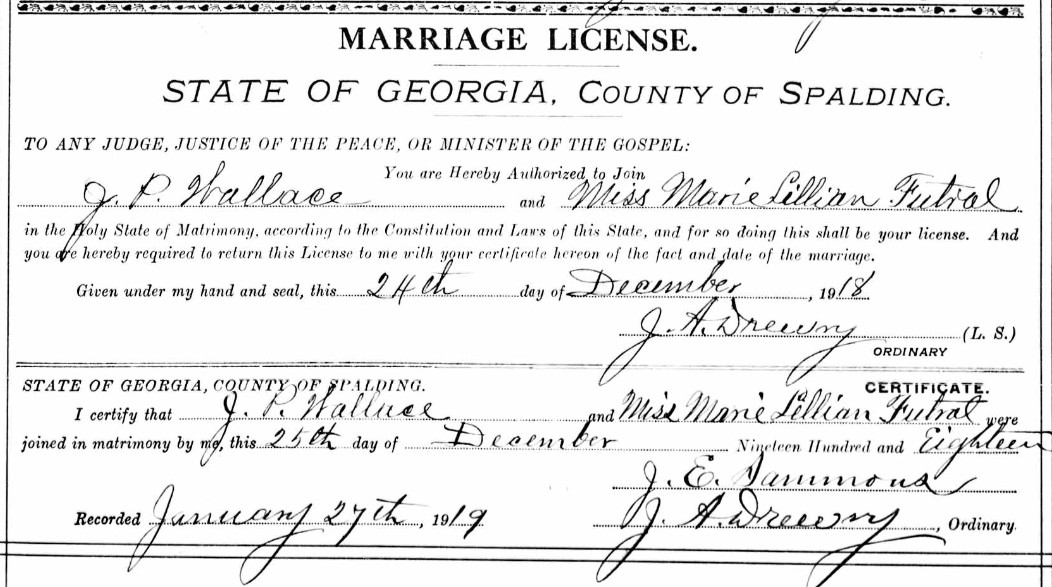 MARRIAGE LICENSE.
STATE OF GEORGIA, COUNTY OF SPALDING.
TO ANY JUDGE, JUSTICE OF THE PEACE, OR MINISTER OF THE GOSPEL:
You are Hereby Authorized to Join
J. P. Wallace and Miss Marie Lillian Futral
in the Holy State of Matrimony, according to the Constitution and Laws of this State, and for so doing this shall be your license. And
you are hereby required to return this License to me with your certificate hereon of the fact and date of the marriage.
Given under my hand and seal, this 24th day of December, 1918
J. A. Drewry (L. S.)
ORDINARY
STATE OF GEORGIA, COUNTY OF SPALDING. CERTIFICATE.
I certify that J. P. Wallace and Miss Marie Lillian Futral were
joined in matrimony by me, this 25th day of December Nineteen Hundred and Eighteen
J. E. Sammons
Recorded January 27th, 1919 J. A. Drewry, Ordinary.